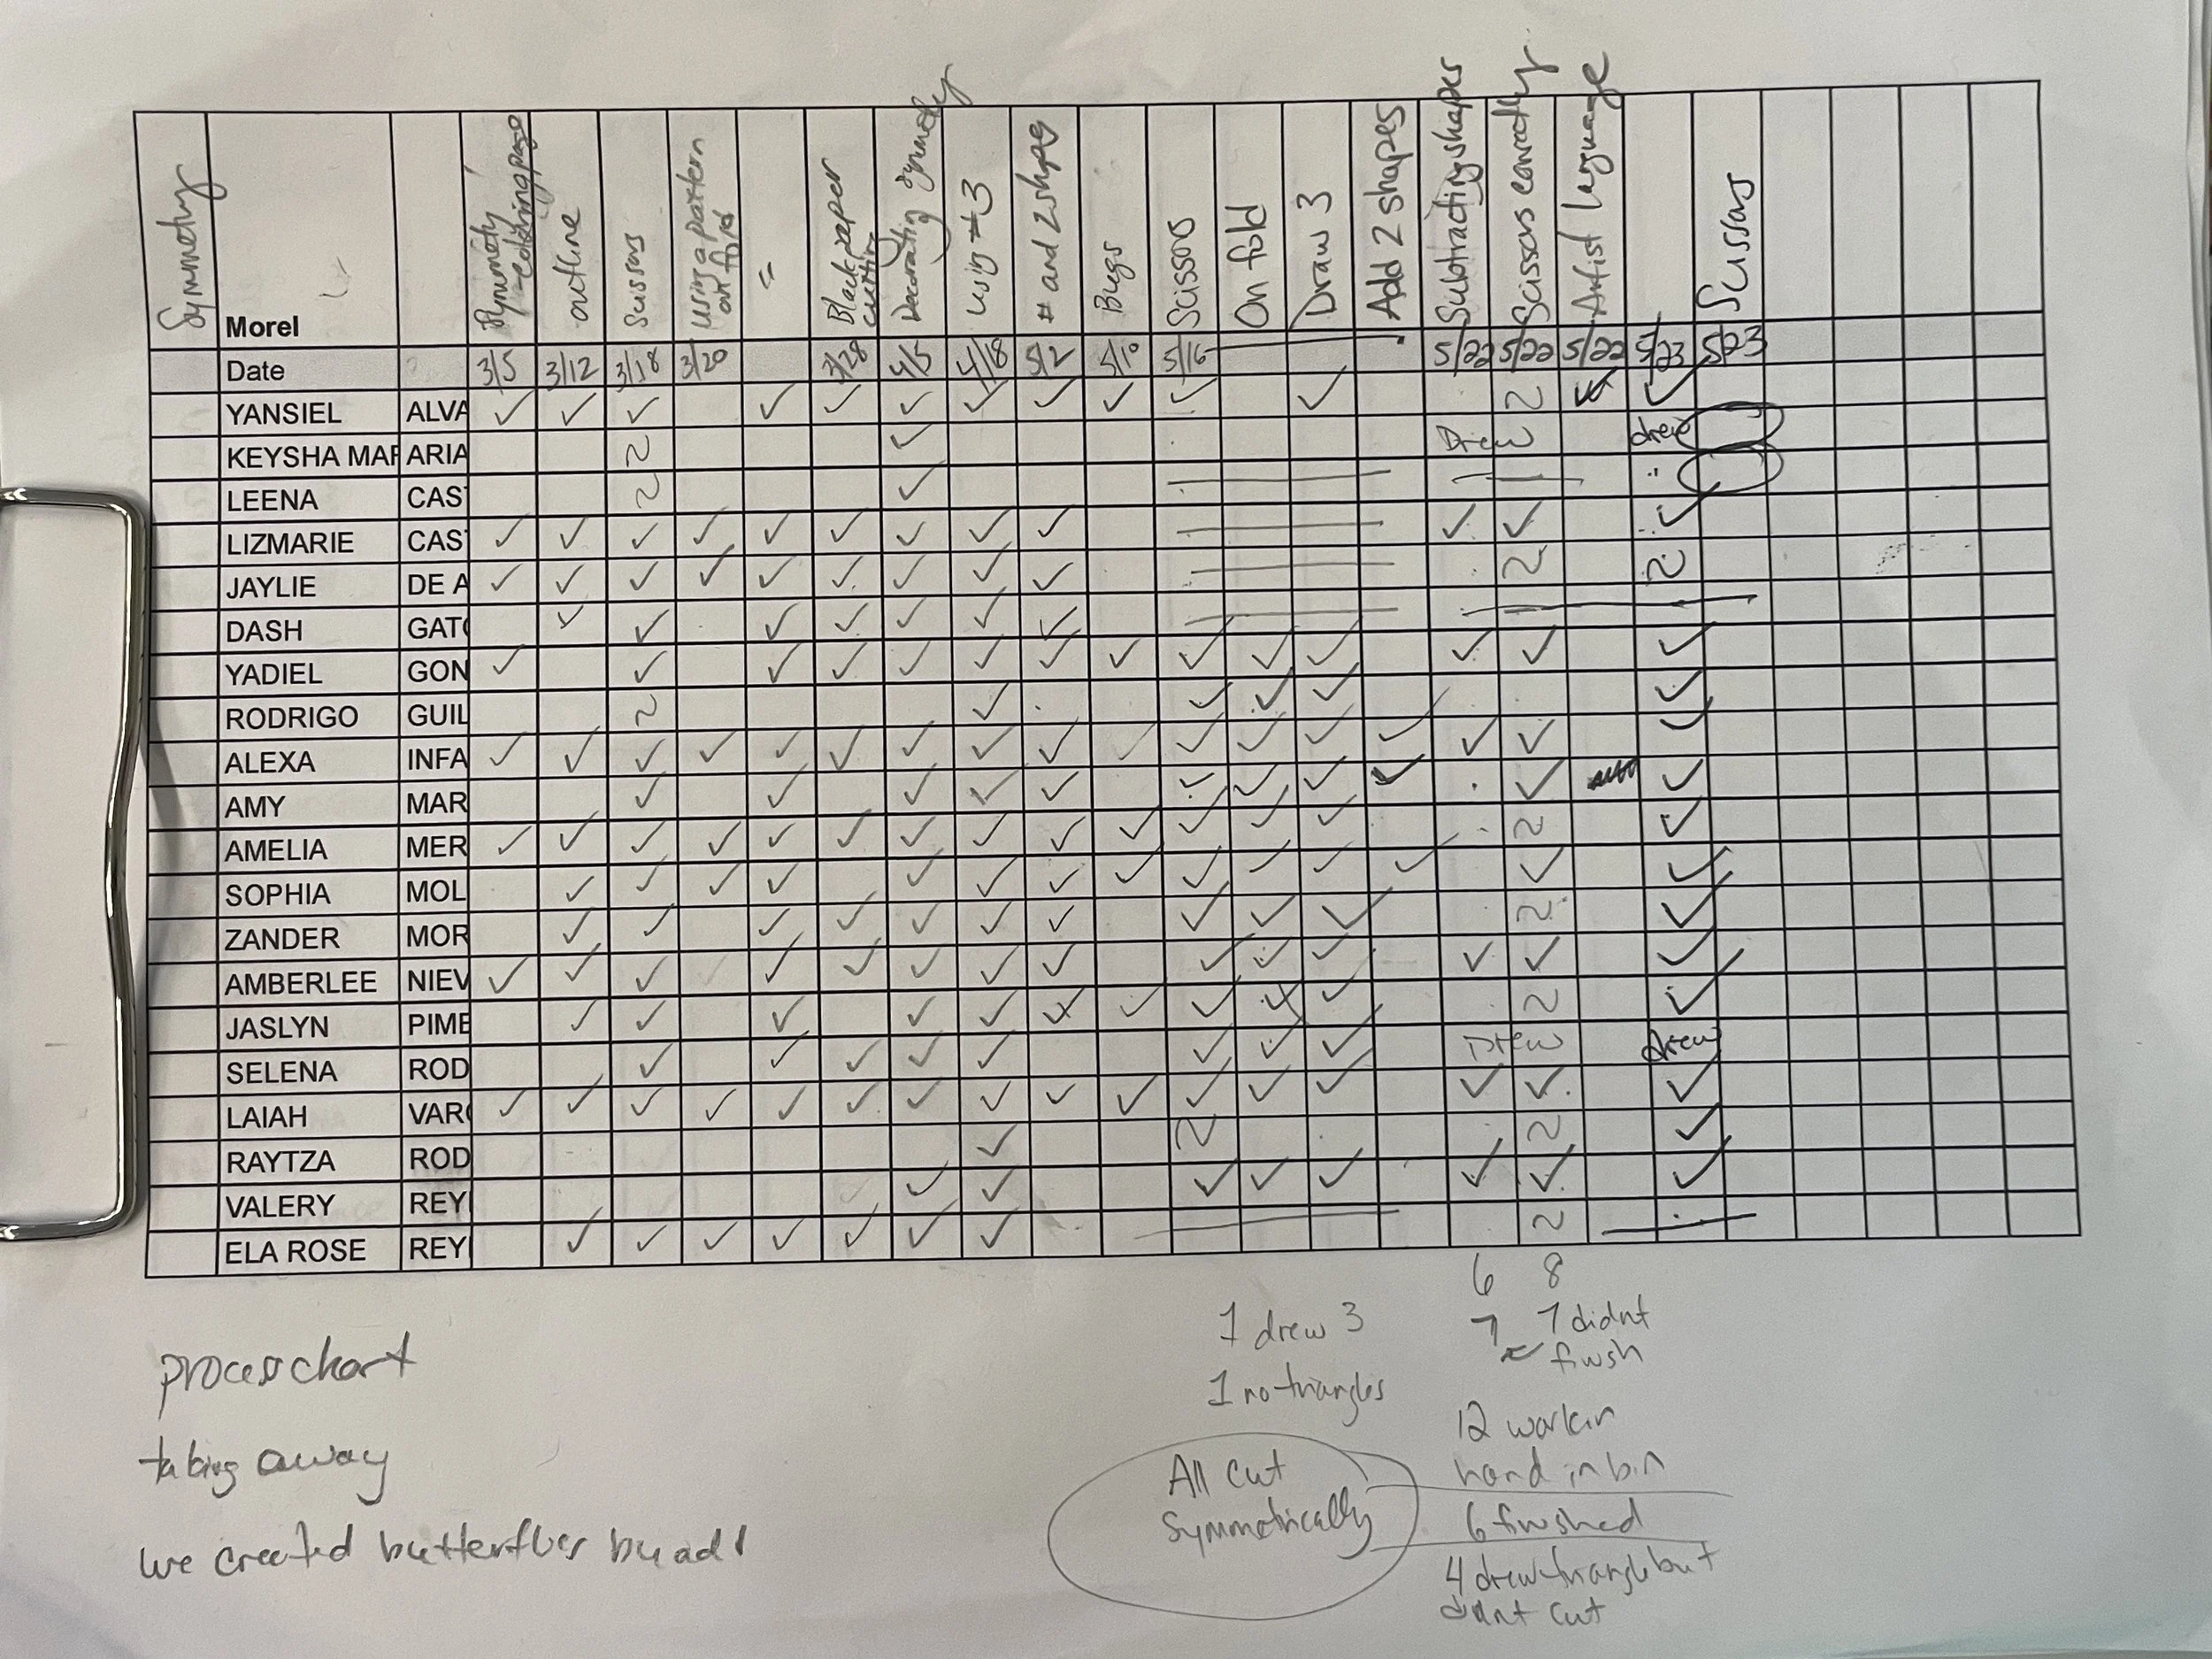 Symmetry Morel Symmetry coloring page outline Scissors using a pattern on fold = Black paper cutting Decorating symmetry using #3 # and 2 shapes Bugs Scissors On fold Draw 3 Add 2 shapes Subtracting shapes Scissors correctly Artist language Scissors
Date 3/5 3/12 3/18 3/20 3/28 4/5 4/18 5/2 5/10 5/16 5/22 5/22 5/22 5/23 5/23
YANSIEL ALVA ✓ ✓ ✓ ✓ ✓ ✓ ✓ ✓ ✓ ✓ ✓ ~ ✓
KEYSHA MAR ARIA ~ ✓ Drew drew
LEENA CAS ~ ✓
LIZMARIE CAS ✓ ✓ ✓ ✓ ✓ ✓ ✓ ✓ ✓ ✓ ✓ ✓
JAYLIE DE A ✓ ✓ ✓ ✓ ✓ ✓ ✓ ✓ ✓ ~ ~
DASH GAT ✓ ✓ ✓ ✓ ✓ ✓ ✓
YADIEL GON ✓ ✓ ✓ ✓ ✓ ✓ ✓ ✓ ✓ ✓ ✓ ✓ ✓ ✓
RODRIGO GUIL ~ ✓ ✓ ✓ ✓ ✓
ALEXA INFA ✓ ✓ ✓ ✓ ✓ ✓ ✓ ✓ ✓ ✓ ✓ ✓ ✓ ✓ ✓ ✓ ✓
AMY MAR ✓ ✓ ✓ ✓ ✓ ✓ ✓ ✓ ✓ ✓ ✓
AMELIA MER ✓ ✓ ✓ ✓ ✓ ✓ ✓ ✓ ✓ ✓ ✓ ✓ ✓ ~ ✓
SOPHIA MOL ✓ ✓ ✓ ✓ ✓ ✓ ✓ ✓ ✓ ✓ ✓ ✓ ✓ ✓
ZANDER MOR ✓ ✓ ✓ ✓ ✓ ✓ ✓ ✓ ✓ ✓ ~ ✓
AMBERLEE NIEV ✓ ✓ ✓ ✓ ✓ ✓ ✓ ✓ ✓ ✓ ✓ ✓ ✓ ✓ ✓
JASLYN PIME ✓ ✓ ✓ ✓ ✓ ✓ ✓ ✓ ✓ ✓ ~ ✓
SELENA ROD ✓ ✓ ✓ ✓ ✓ ✓ ✓ ✓ Drew drew
LAIAH VAR ✓ ✓ ✓ ✓ ✓ ✓ ✓ ✓ ✓ ✓ ✓ ✓ ✓ ✓ ✓ ✓
RAYTZA ROD ✓ ~ ~ ✓
VALERY REY ✓ ✓ ✓ ✓ ✓ ✓ ✓ ✓ ✓
ELA ROSE REY ✓ ✓ ✓ ✓ ✓ ✓ ✓ ~
6 8
1 drew 3
7 7 didnt
~ finish
1 no triangles
process chart
taking away
we created butterflies by add
All cut
Symmetrically
12 work in
hand in bin
6 finished
4 drew triangle but
didnt cut